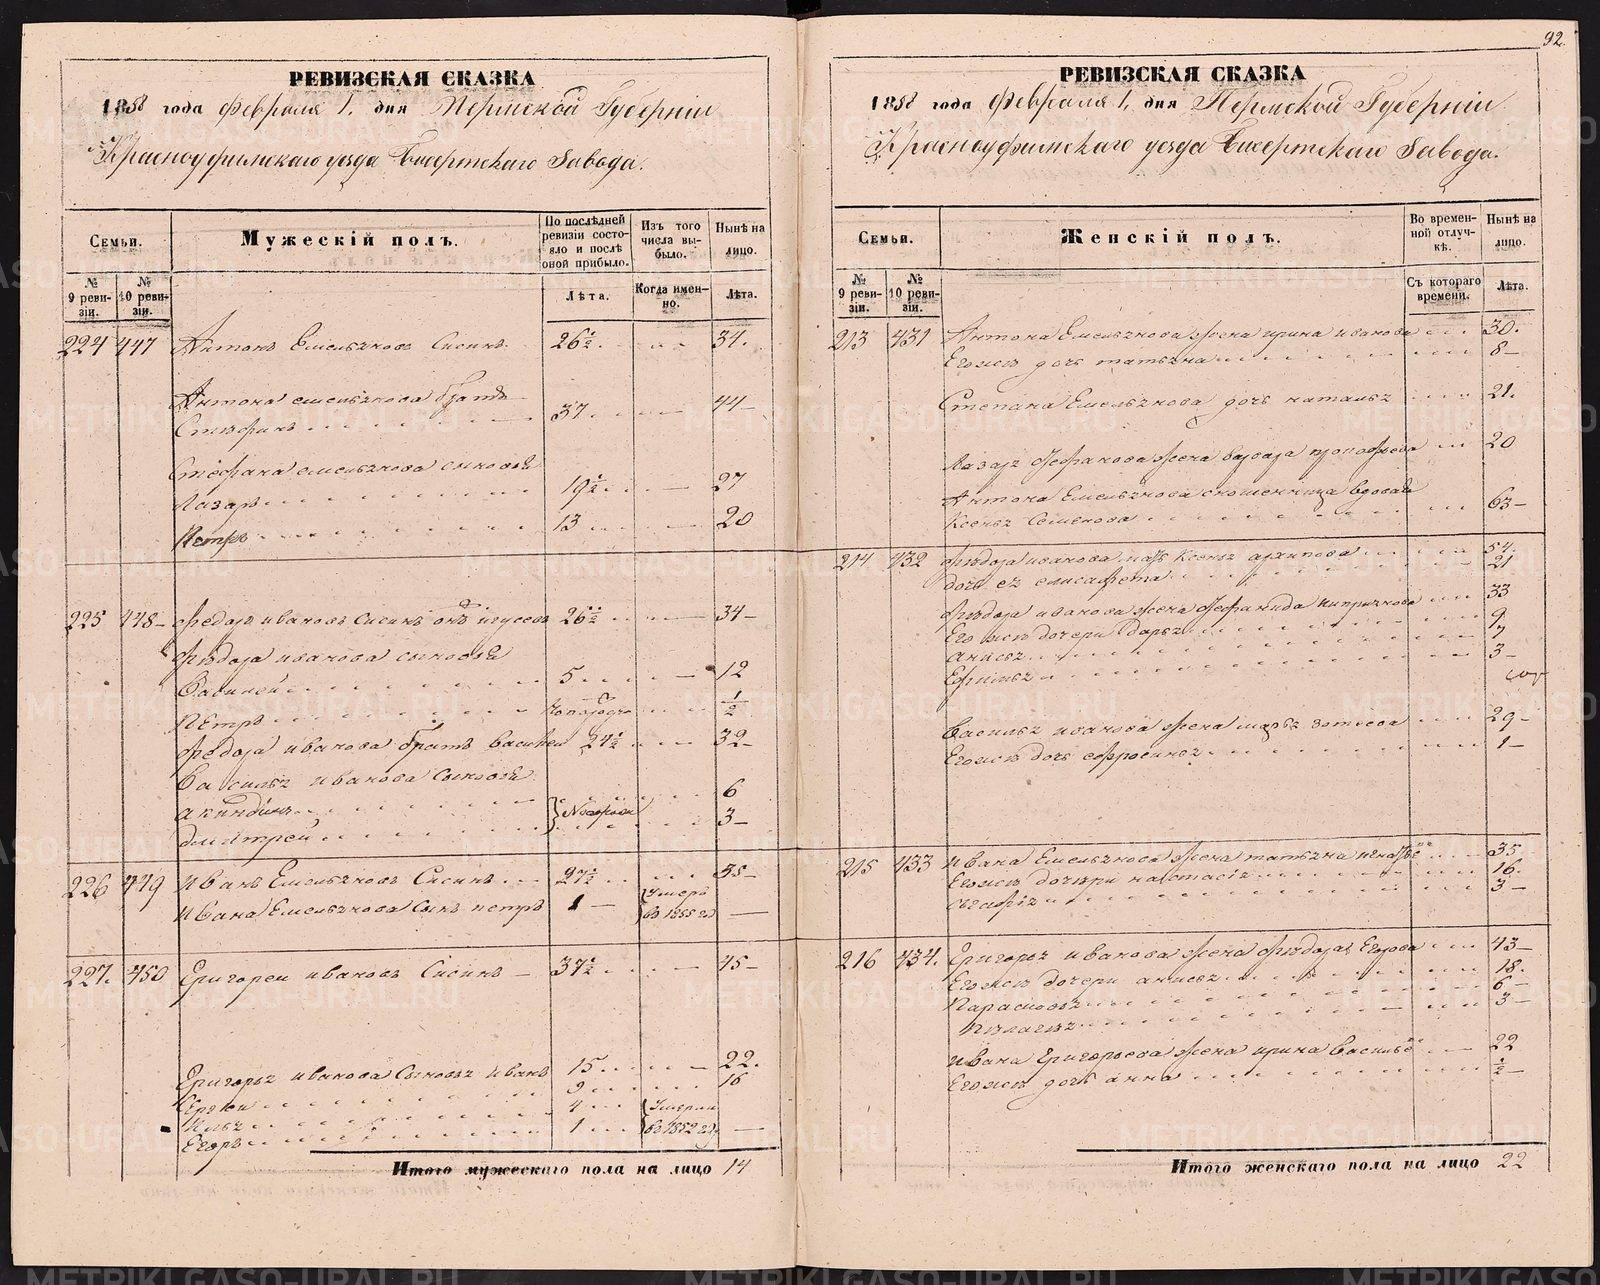 92.
РЕВИЗСКАЯ СКАЗКА
1858 года Февраля 1. дня Пермской Губерніи
Красноуфимскаго уезда Бисертскаго Завода.
Семьи.
Мужескій полъ.
По послѣдней ревизіи состояло и послѣ оной прибыло.
Изъ того числа выбыло.
Нынѣ на лицо.
№ 9 ревизіи.
№ 10 ревизіи.
Лѣта.
Когда именно.
Лѣта.
224 447 Антонъ Емельяновъ Сисинъ 26½ 34.
Антона емельянова братъ
Стефанъ 37 44
Стефана емельянова сыновья
Лазарь 19½ 27
Петръ 13 20
225 448 Федоръ ивановъ Сисинъ 26½ 34
Федора иванова сыновья
Василей 5 12
Петръ ½
Федора иванова братъ василей 24½ 32
Василья иванова сыновья
акиндинъ 6
дмитрей 3
226 449 иванъ Емельяновъ Сисинъ 27½ 35
ивана Емельянова сынъ петръ 1 Умеръ
въ 1855 —
227. 450 Григорей ивановъ Сисинъ 37½ 45
Григорья иванова сыновья иванъ 15 22.
9 16
Илья 4 Умерли
Егоръ 1 въ 1852 —
Итого мужескаго пола на лицо 14
РЕВИЗСКАЯ СКАЗКА
1858 года Февраля 1. дня Пермской Губерніи
Красноуфимскаго уезда Бисертскаго Завода.
Семьи.
Женскій полъ.
Во временной отлучкѣ.
Нынѣ на лицо.
№ 9 ревизіи.
№ 10 ревизіи.
Съ котораго времени.
Лѣта.
213 431 Антона Емельянова жена ирина иванова 30.
Егоже дочь татьяна 8
Степана Емельянова дочь наталья 21.
Лазаря жена варвара 20
Антона Емельянова вдова
Ксенья 63
214 432 Федора иванова мать Ксенья архипова 54.
дочь ея елисафета 21
Федора иванова жена 33
Егоже дочери Дарья 9
анисья 7
3
Василья иванова жена марья зотеева 29
Егоже дочь ефросинья 1
215 433 ивана Емельянова жена татьяна 35
Егоже дочери настасія 16.
3
216 434. Григорья иванова жена Федора Егорова 43
Егоже дочери анисья 18.
Парасковья 6
Пелагея 3
ивана Григорьева жена ирина 22
Егоже дочь анна ½
Итого женскаго пола на лицо 22
METRIKI.GASO-URAL.RU